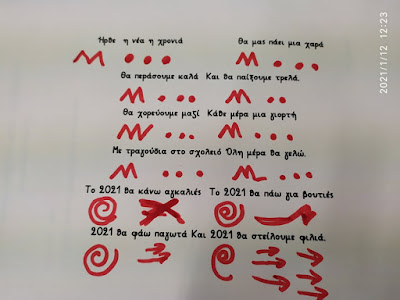 Ήρθε η νέα η χρονιά θα μας πάει μια χαρά
θα περάσουμε καλά Και θα παίξουμε τρελά.
θα χορεύουμε μαζί Κάθε μέρα μια γιορτή
Με τραγούδια στο σχολειό Όλη μέρα θα γελώ.
Το 2021 θα κάνω αγκαλιές Το 2021 θα πάω για βουτιές
2021 θα φάω παγωτά Και 2021 θα στείλουμε φιλιά.
2021/1/12 12:23